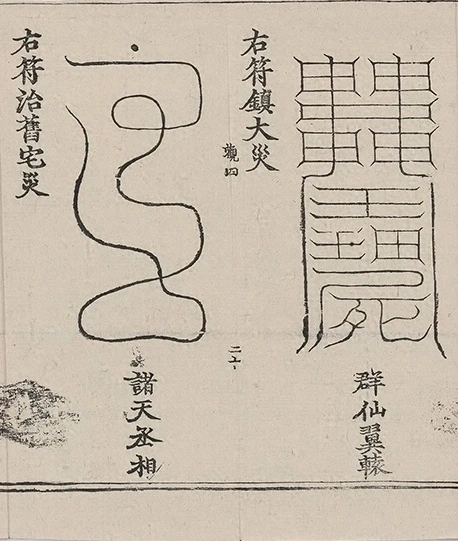 群仙翼轅
右符鎮大災
觀四
二十
諸天丞相
右符治舊宅災